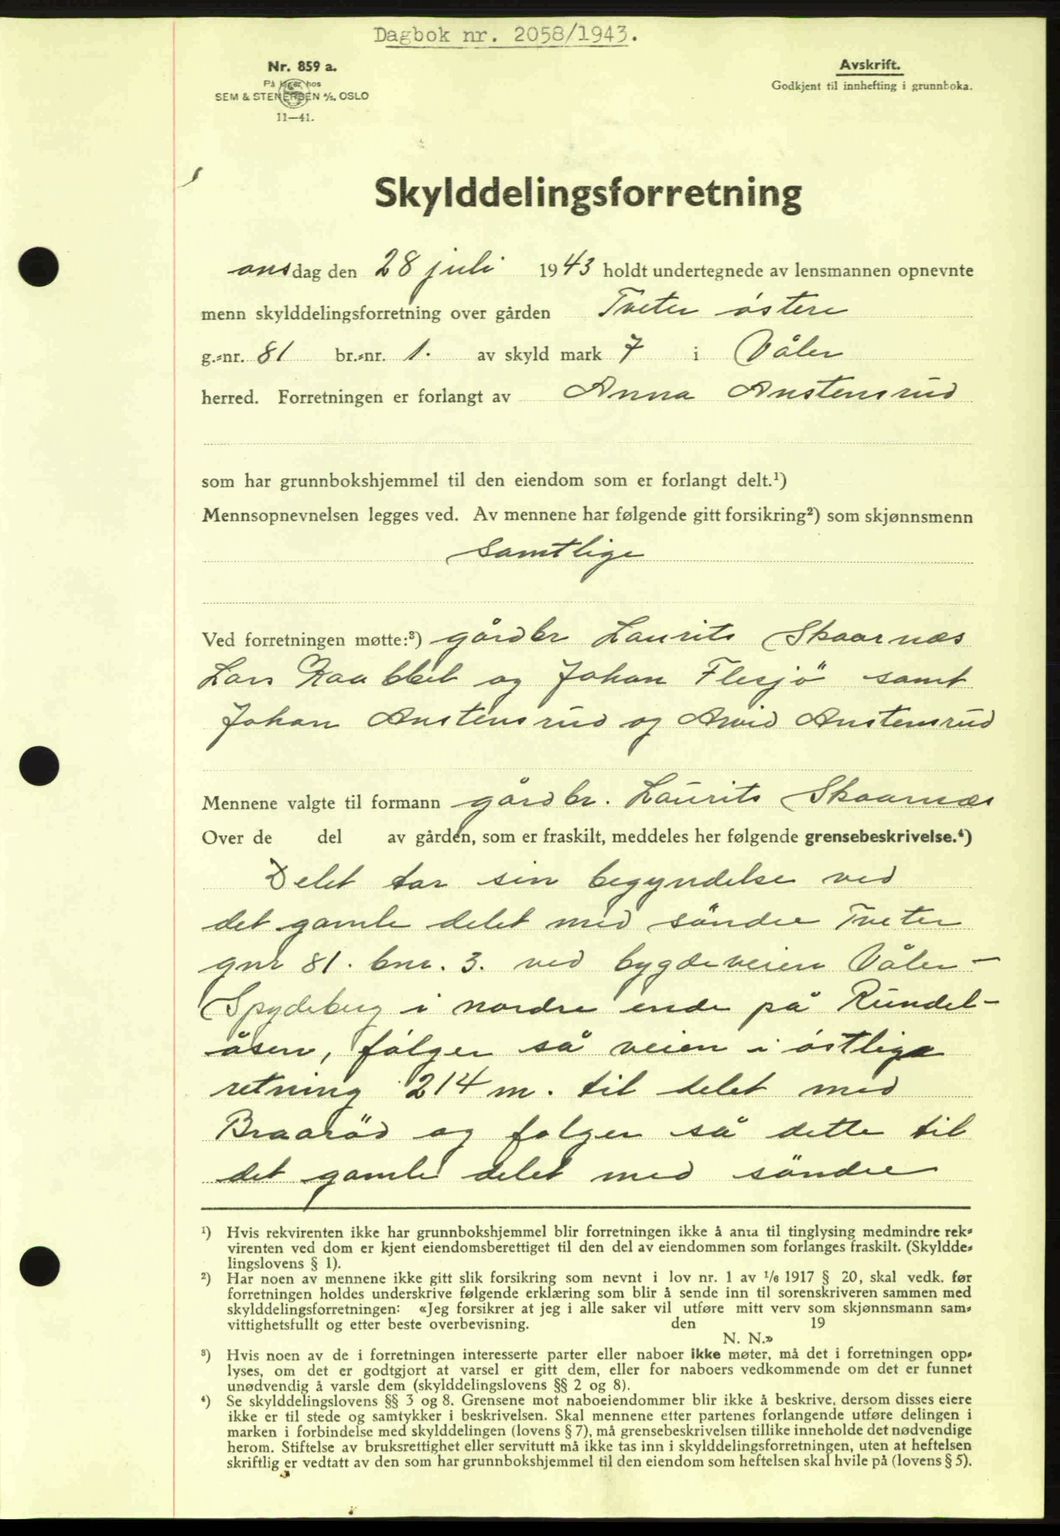 Dagbok nr. 2058/1943.
Nr. 859 a.
På lager hos
SEM & STENERSEN A/S, OSLO
11—41.
Avskrift.
Godkjent til innhefting i grunnboka.
Skylddelingsforretning
onsdag den 28 juli 1943 holdt undertegnede av lensmannen opnevnte
menn skylddelingsforretning over gården Tveter østere
g.-nr. 81 br.-nr. 1. av skyld mark 7 i Våler
herred. Forretningen er forlangt av Anna Anstensrud
som har grunnbokshjemmel til den eiendom som er forlangt delt.¹)
Mennsopnevnelsen legges ved. Av mennene har følgende gitt forsikring²) som skjønnsmenn
samtlige
Ved forretningen møtte:³) gårdbr Laurits Skaarnæs
Lars og Johan Flesjö samt
Johan Anstensrud og Arvid Anstensrud
Mennene valgte til formann gårdbr. Laurits Skaarnæs
Over de del av gården, som er fraskilt, meddeles her følgende grensebeskrivelse.⁴)
Delet tar sin begyndelse ved
det gamle delet med söndre Tveter
gnr 81. bnr. 3. ved bygdeveien Våler -
Spydeberg i nordre ende på Rundel-
åsen, følger så veien i östlige
retning 214 m. til delet med
Braaröd og følger så dette til
det gamle delet med söndre
¹) Hvis rekvirenten ikke har grunnbokshjemmel blir forretningen ikke å anta til tinglysing medmindre rek-
virenten ved dom er kjent eiendomsberettiget til den del av eiendommen som forlanges fraskilt. (Skyldde-
lingslovens § 1).
²) Har noen av mennene ikke gitt slik forsikring som nevnt i lov nr. 1 av 1/6 1917 § 20, skal vedk. før
forretningen holdes underskrive følgende erklæring som blir å sende inn til sorenskriveren sammen med
skylddelingsforretningen: «Jeg forsikrer at jeg i alle saker vil utføre mitt verv som skjønnsmann sam-
vittighetsfullt og etter beste overbevisning. den 19
N. N.»
³) Hvis noen av de i forretningen interesserte parter eller naboer ikke møter, må det i forretningen opp-
lyses, om det er godtgjort at varsel er gitt dem, eller for naboers vedkommende om det er funnet
unødvendig å varsle dem (skylddelingslovens §§ 2 og 8).
⁴) Se skylddelingslovens §§ 3 og 8. Grensene mot naboeiendommer blir ikke å beskrive, dersom disses eiere
ikke er til stede og samtykker i beskrivelsen. Skal mennene etter partenes forlangende utføre delingen i
marken i forbindelse med skylddelingen (lovens § 7), må grensebeskrivelsen tillike inneholde det nødvendige
herom. Stiftelse av bruksrettighet eller servitutt må ikke tas inn i skylddelingsforretningen, uten at heftelsen
skriftlig er vedtatt av den som har grunnbokshjemmel til den eiendom som heftelsen skal hvile på (lovens § 5).